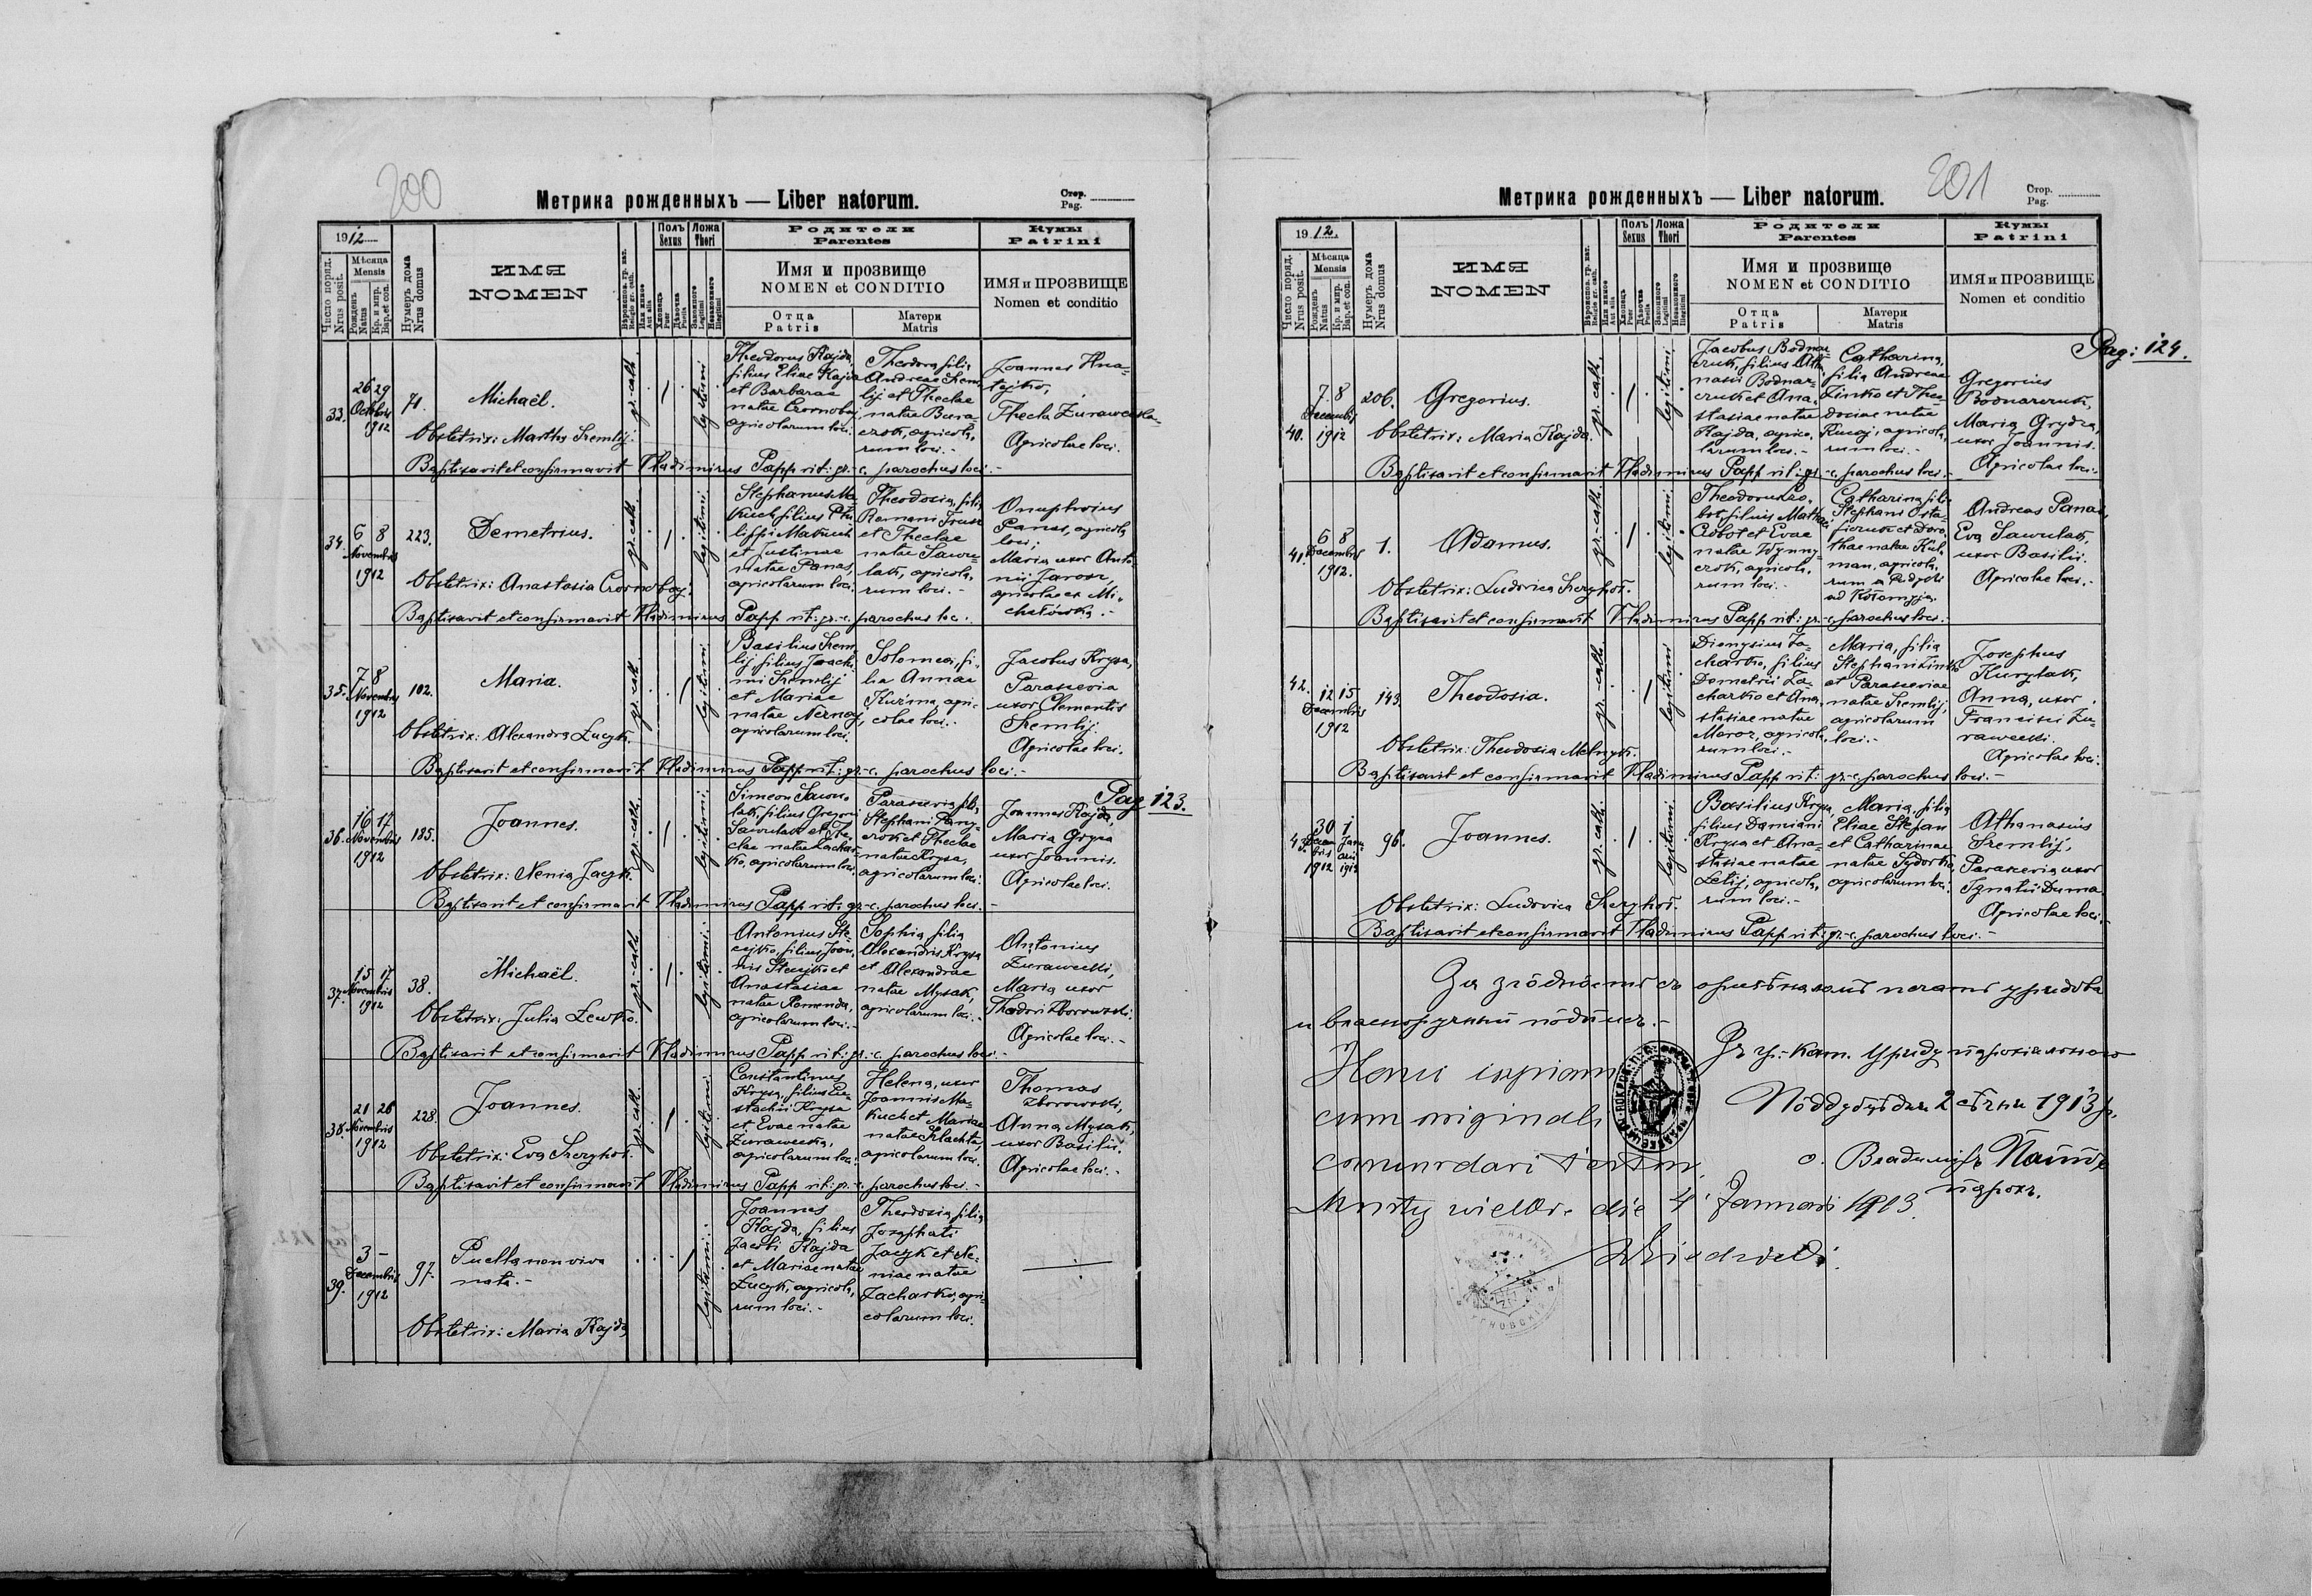 200
Метрика рожденныхъ — Liber natorum.
Стор.
Pag.
1912
Число поряд.
Nrus posit.
Мѣсяца
Mensis
Рожденъ
Natus
Кр. и мир.
Bap. et con.
Нумеръ дома
Nrus domus
ИМЯ
NOMEN
Вѣроиспов. гр. кат.
Religio gr. cath.
Или инное
Aut alia
Полъ
Sexus
Хлопецъ
Puer
Дѣвочка
Puella
Ложа
Thori
Законного
Legitimi
Незаконного
Illegitimi
Родители
Parentes
Имя и прозвище
NOMEN et CONDITIO
Отца
Patris
Матери
Matris
Кумы
Patrini
ИМЯ и ПРОЗВИЩЕ
Nomen et conditio
33.
26 29
Octobris
1912
71.
Michaël.
Obstetrix: Martha Kremlij.
gr.-cath.
legitimi
Theodorus Hajda,
filius Eliae Hajda
et Barbarae
natae Czornobaj,
agricolarum loci.
Theodora filia
Andreae
et Theclae
natae Bura-
czok, agricola-
rum loci.-
Joannes Hna-
tejko,
Thecla Zurawecka
Agricolae loci.
Baptisavit et confirmavit Vladimirus Papp rit: gr.-c. parochus loci.-
34.
6 8
Novembris
1912
223.
Demetrius.
Obstetrix: Anastasia Czornobaj.
gr.-cath.
legitimi
Stephanus Ma-
kuch filius Phi-
lippi Makuch
et Justinae
natae Panas,
agricolarum loci.
Theodosia, filia
Romani
et Theclae
natae Sawu-
lak, agricola-
rum loci.-
Onuphrius
Panas, agricola
loci;
Maria uxor Anto-
nii Jarosz,
agricolae ex Mi-
chałówka.-
Baptisavit et confirmavit Vladimirus Papp rit: gr.-c. parochus loci.
35.
7 8
Novembris
1912
102.
Maria.
Obstetrix: Alexandra Łucyk.
gr.-cath.
legitimi
Basilius Krem-
lij, filius Joachi-
mi Kremlij
et Mariae
natae Nernaj,
agricolarum loci.
Solomea, fi-
lia Annae
Kuźma, agri-
colae loci.-
Jacobus Krysa,
Parascevia
uxor Clementis
Kremlij.
Agricolae loci.
Baptisavit et confirmavit Vladimirus Papp rit: gr.-c. parochus loci.-
Pag 123.
36.
16 17
Novembris
1912
185.
Joannes.
Obstetrix: Xenia Jacyk.
gr.-cath.
legitimi
Simeon Sawu-
lak, filius Gregorii
Sawulak et The-
clae natae Zachar-
ko, agricolarum loci.
Parascevia filia
Stephani
et Theclae
natae Krysa,
agricolarum loci.
Joannes Hajda,
Maria Gryza
uxor Joannis.
Agricolae loci.
Baptisavit et confirmavit Vladimirus Papp rit: gr.-c. parochus loci.-
37.
15 17
Novembris
1912
38.
Michaël.
Obstetrix: Julia Lewko.
gr.-cath.
legitimi.
Antonius Ste-
cyjko, filius Joan-
nis Stecyjko et
Anastasiae
natae Romanda,
agricolarum loci.-
Sophia filia
Alexandri Krysa
et Alexandrae
natae Mysak,
agricolarum loci.-
Antonius
Zurawecki,
Maria uxor
Theodori Zborowski.
Agricolae loci.-
Baptisavit et confirmavit Vladimirus Papp rit: gr.-c. parochus loci.-
38.
21 26
Novembris
1912
228.
Joannes.
Obstetrix: Eva Skrzykoł.
gr.-cath.
legitimi
Constantinus
Krysa, filius Eu-
stachii Krysa
et Evae natae
Zurawecka,
agricolarum loci.
Helena, uxor
Joannis Ma-
kuch et Mariae
natae Szlachta,
agricolarum loci.
Thomas
Zborowski,
Anna Mysak,
uxor Basilii.
Agricolae loci.-
Baptisavit et confirmavit Vladimirus Papp rit: gr.-c. parochus loci.-
39.
3 –
Decembris
1912
97.
Puella non viva
nata.-
Obstetrix: Maria Hajda
legitimi.
Joannes
Hajda, filius
Jacobi Hajda
et Mariae natae
Łucyk, agricola-
rum loci.-
Theodosia filia
Josaphati
Jacyk et Xe-
niae natae
Zacharko, agri-
colarum loci.
201
Метрика рожденныхъ — Liber natorum.
Стор.
Pag.
1912.
Число поряд.
Nrus posit.
Мѣсяца
Mensis
Рожденъ
Natus
Кр. и мир.
Bap. et con.
Нумеръ дома
Nrus domus
ИМЯ
NOMEN
Вѣроиспов. гр. кат.
Religio gr. cath.
Или инное
Aut alia
Полъ
Sexus
Хлопецъ
Puer
Дѣвочка
Puella
Ложа
Thori
Законного
Legitimi
Незаконного
Illegitimi
Родители
Parentes
Имя и прозвище
NOMEN et CONDITIO
Отца
Patris
Матери
Matris
Кумы
Patrini
ИМЯ и ПРОЗВИЩЕ
Nomen et conditio
Pag: 124.
40.
7 8
Decembris
1912
206.
Gregorius.
Obstetrix: Maria Hajda.
gr.-cath.
legitimi
Jacobus Bodnar-
czuk, filius Atha-
nasii Bodnar-
czuk et Ana-
stasiae natae
Hajda, agrico-
larum loci.-
Catharina,
filia Andreae
Zinko et Theo-
dosiae natae
agricola-
rum loci.-
Gregorius
Bodnarczuk,
Maria Grydza,
uxor Joannis.
Agricolae loci.-
Baptisavit et confirmavit Vladimirus Papp rit: gr.-c. parochus loci.-
41.
6 8
Decembris
1912.
1.
Adamus.
Obstetrix: Ludovica Skrzykoł.
gr.-cath.
legitimi
Theodorus
filius Mathaei
et Evae
natae Wynny-
czok, agricola-
rum loci.-
Catharina filia
Stephani Osta-
ficzuk et Doro-
theae natae Kul-
man, agricola-
rum
ad Kołomyja.
Andreas Panas,
Eva Sawulak,
uxor Basilii.
Agricolae loci.-
Baptisavit et confirmavit Vladimirus Papp rit: gr.-c. parochus loci.-
42.
12 15
Decembris
1912
143.
Theodosia.
Obstetrix: Theodosia Melnyk.
gr.-cath.
legitimi
Dionysius Za-
charko, filius
Demetrii Za-
charko et Ana-
stasiae natae
Maroz, agricola-
rum loci.-
Maria, filia
Stephani Zinko
et Parasceviae
natae Kremlij,
agricolarum
loci.-
Josephus
Kurylak,
Anna, uxor
Francisci Zu-
rawecki.
Agricolae loci.
Baptisavit et confirmavit Vladimirus Papp rit: gr.-c. parochus loci.-
43.
30 1
Decem- Janu-
bris arii
1912 1913
96.
Joannes.
Obstetrix: Ludovica Skrzykoł.
gr.-cath.
legitimi
Basilius Krysa,
filius Damiani
Krysa et Ana-
stasiae natae
Letij, agricola-
rum loci.-
Maria, filia
Eliae Stefan
et Catharinae
natae Sydorko,
agricolarum loci.
Athanasius
Kremlij,
Parascevia uxor
Ignatii Duma.
Agricolae loci.-
Baptisavit et confirmavit Vladimirus Papp rit: gr.-c. parochus loci.-
За згôднôсть съ оригѣналомъ печать урядова
и власноручный пôдписъ.-
Hanc copiam
cum originali
concordari testor
die 4 Januari 1913.
Зъ гр.-кат. уряду парохіяльного
Пôддубцѣ дня 2 сѣчня 1913 р.
о. Владимиръ Паппъ
парохъ.